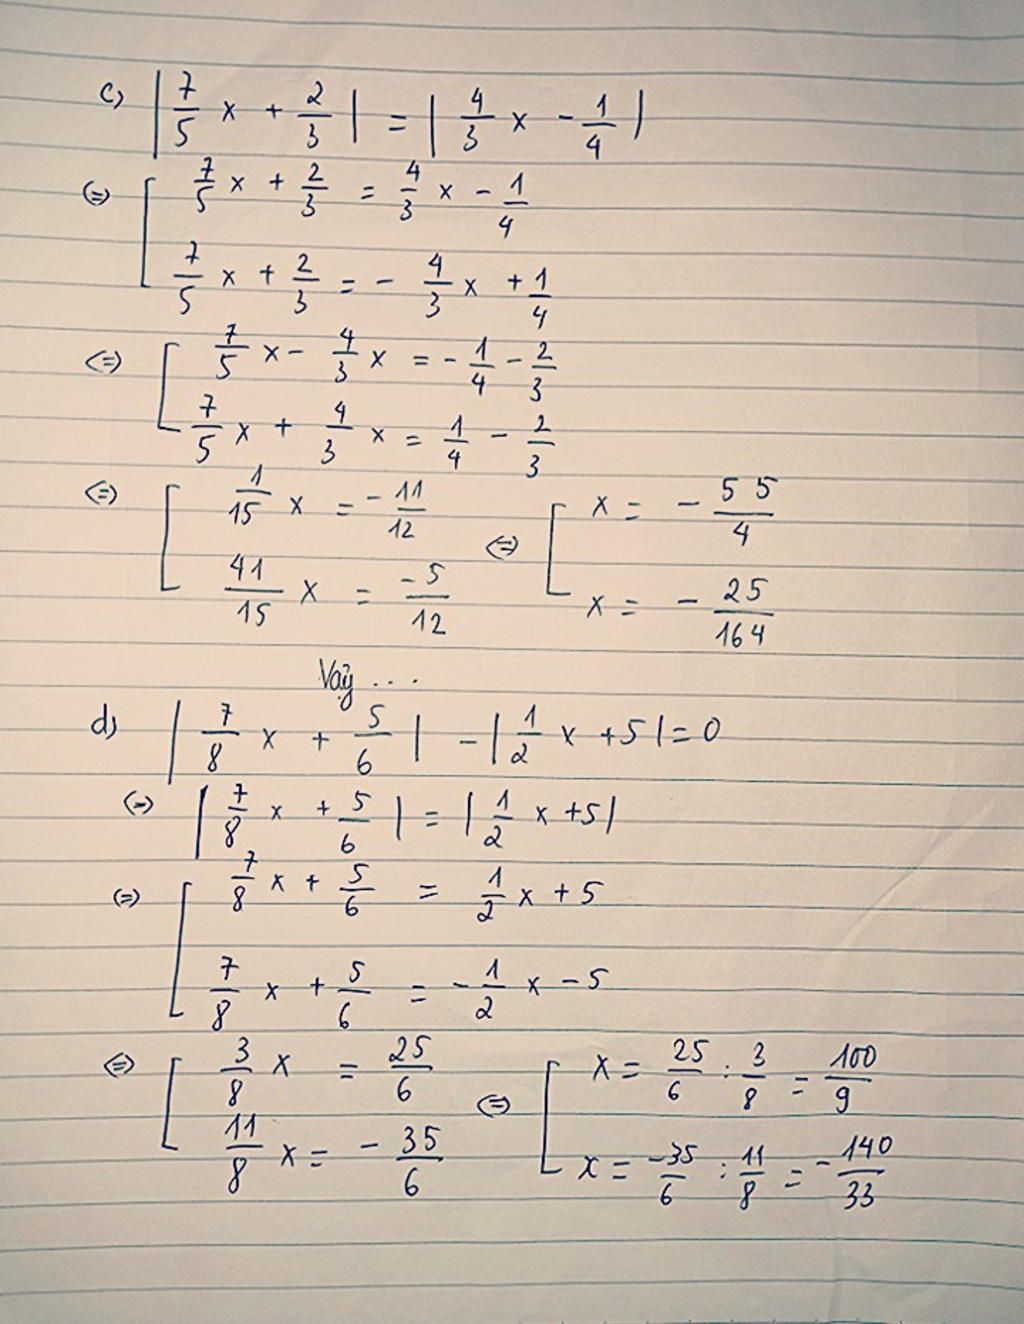 c) |7/5 x + 2/3| = |4/3 x - 1/4|
(=) [ 7/5 x + 2/3 = 4/3 x - 1/4
7/5 x + 2/3 = - 4/3 x + 1/4
<=) [ 7/5 x - 4/3 x = - 1/4 - 2/3
7/5 x + 4/3 x = 1/4 - 2/3
(=) [ 1/15 x = -11/12 (=) [ x = - 55/4
41/15 x = -5/12 x = - 25/164
Vậy ...
d) |7/8 x + 5/6| - |1/2 x + 5| = 0
(=) |7/8 x + 5/6| = |1/2 x + 5|
(=) [ 7/8 x + 5/6 = 1/2 x + 5
7/8 x + 5/6 = - 1/2 x - 5
(=) [ 3/8 x = 25/6 (=) [ x = 25/6 : 3/8 = 100/9
11/8 x = - 35/6 x = -35/6 : 11/8 = - 140/33